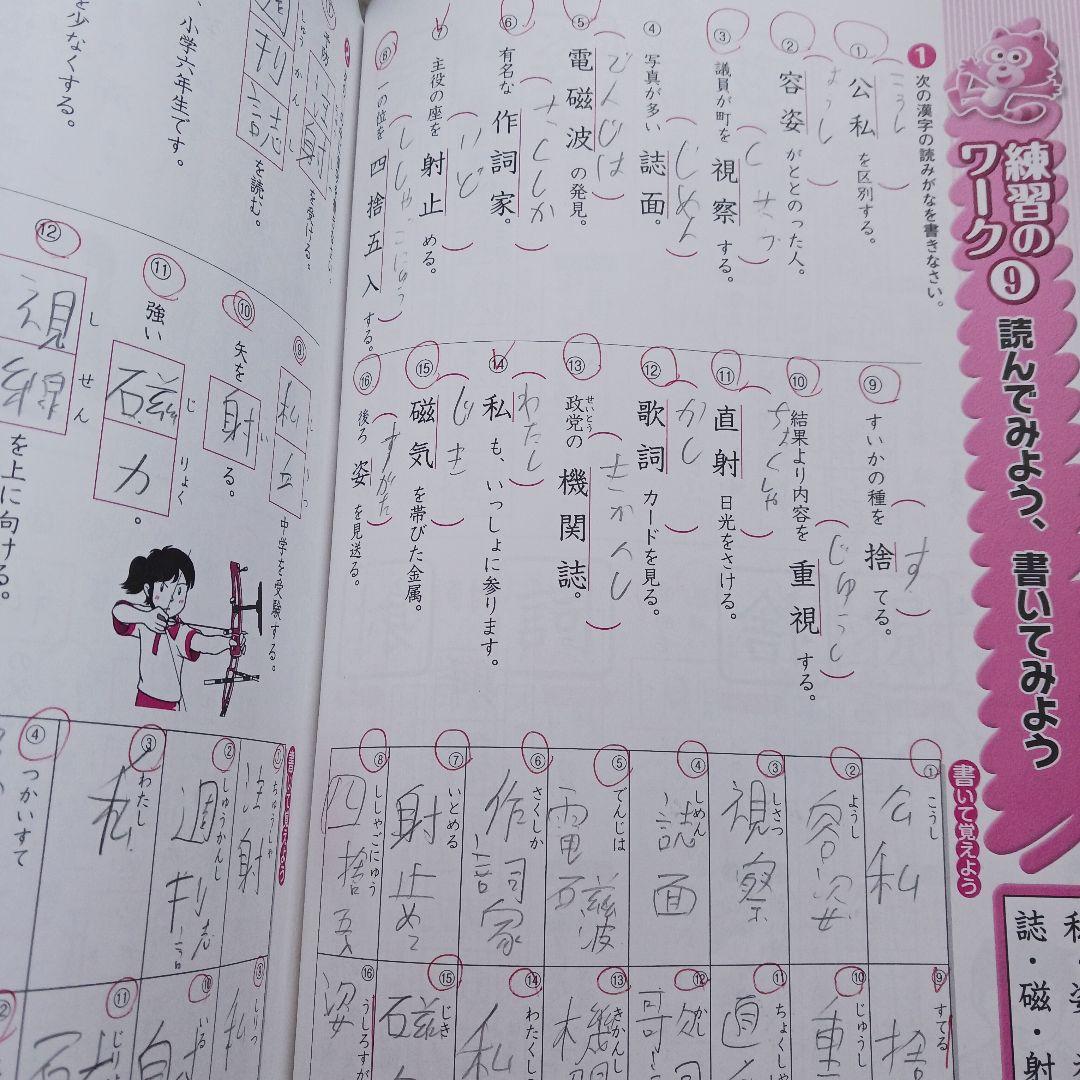 練習のワーク⑨
読んでみよう、書いてみよう
❶ 次の漢字の読みがなを書きなさい。
① 公私を区別する。
こうし
② 容姿がととのった人。
ようし
③ 議員が町を視察する。
しさつ
④ 写真が多い誌面。
しめん
⑤ 電磁波の発見。
でんじは
⑥ 有名な作詞家。
さくしか
⑦ 主役の座を射止める。
いど
⑧ 一の位を四捨五入する。
ししゃごにゅう
⑨ すいかの種を捨てる。
す
⑩ 結果より内容を重視する。
じゅうし
⑪ 直射日光をさける。
ちょくしゃ
⑫ 歌詞カードを見る。
かし
⑬ 政党の機関誌。
せいとう
きかんし
⑭ 私も、いっしょに参ります。
わたし
⑮ 磁気を帯びた金属。
じき
⑯ 後ろ姿を見送る。
すがた
書いて覚えよう
① こうし
公私
② ようし
容姿
③ しさつ
視察
④ しめん
誌面
⑤ でんじは
電磁波
⑥ さくしか
作詞家
⑦ いとめる
射止めて
⑧ ししゃごにゅう
四捨五入
⑨ すてる
捨
⑩ じゅうし
重
⑪ ちょくしゃ
直
⑫ かし
歌
⑬ きかんし
機関
⑭ わたくし
私
⑮ じき
磁
⑯ うしろすが
姿
私・姿
誌・磁・射
を少なくする。
、小学六年生です。
しゅうかんし
週刊誌を読む。
を受ける。
⑨ しりつ
私立中学を受験する。
⑩ 矢を射る。
い
⑪ 強い磁力。
じりょく
⑫ 視線を上に向ける。
しせん
書いて覚えよう
① ちゅうしゃ
注射
② しゅうかんし
週刊誌
③ わたし
私
④ つかいすて
⑨ しりつ
私
⑩ いる
射
⑪ じりょ